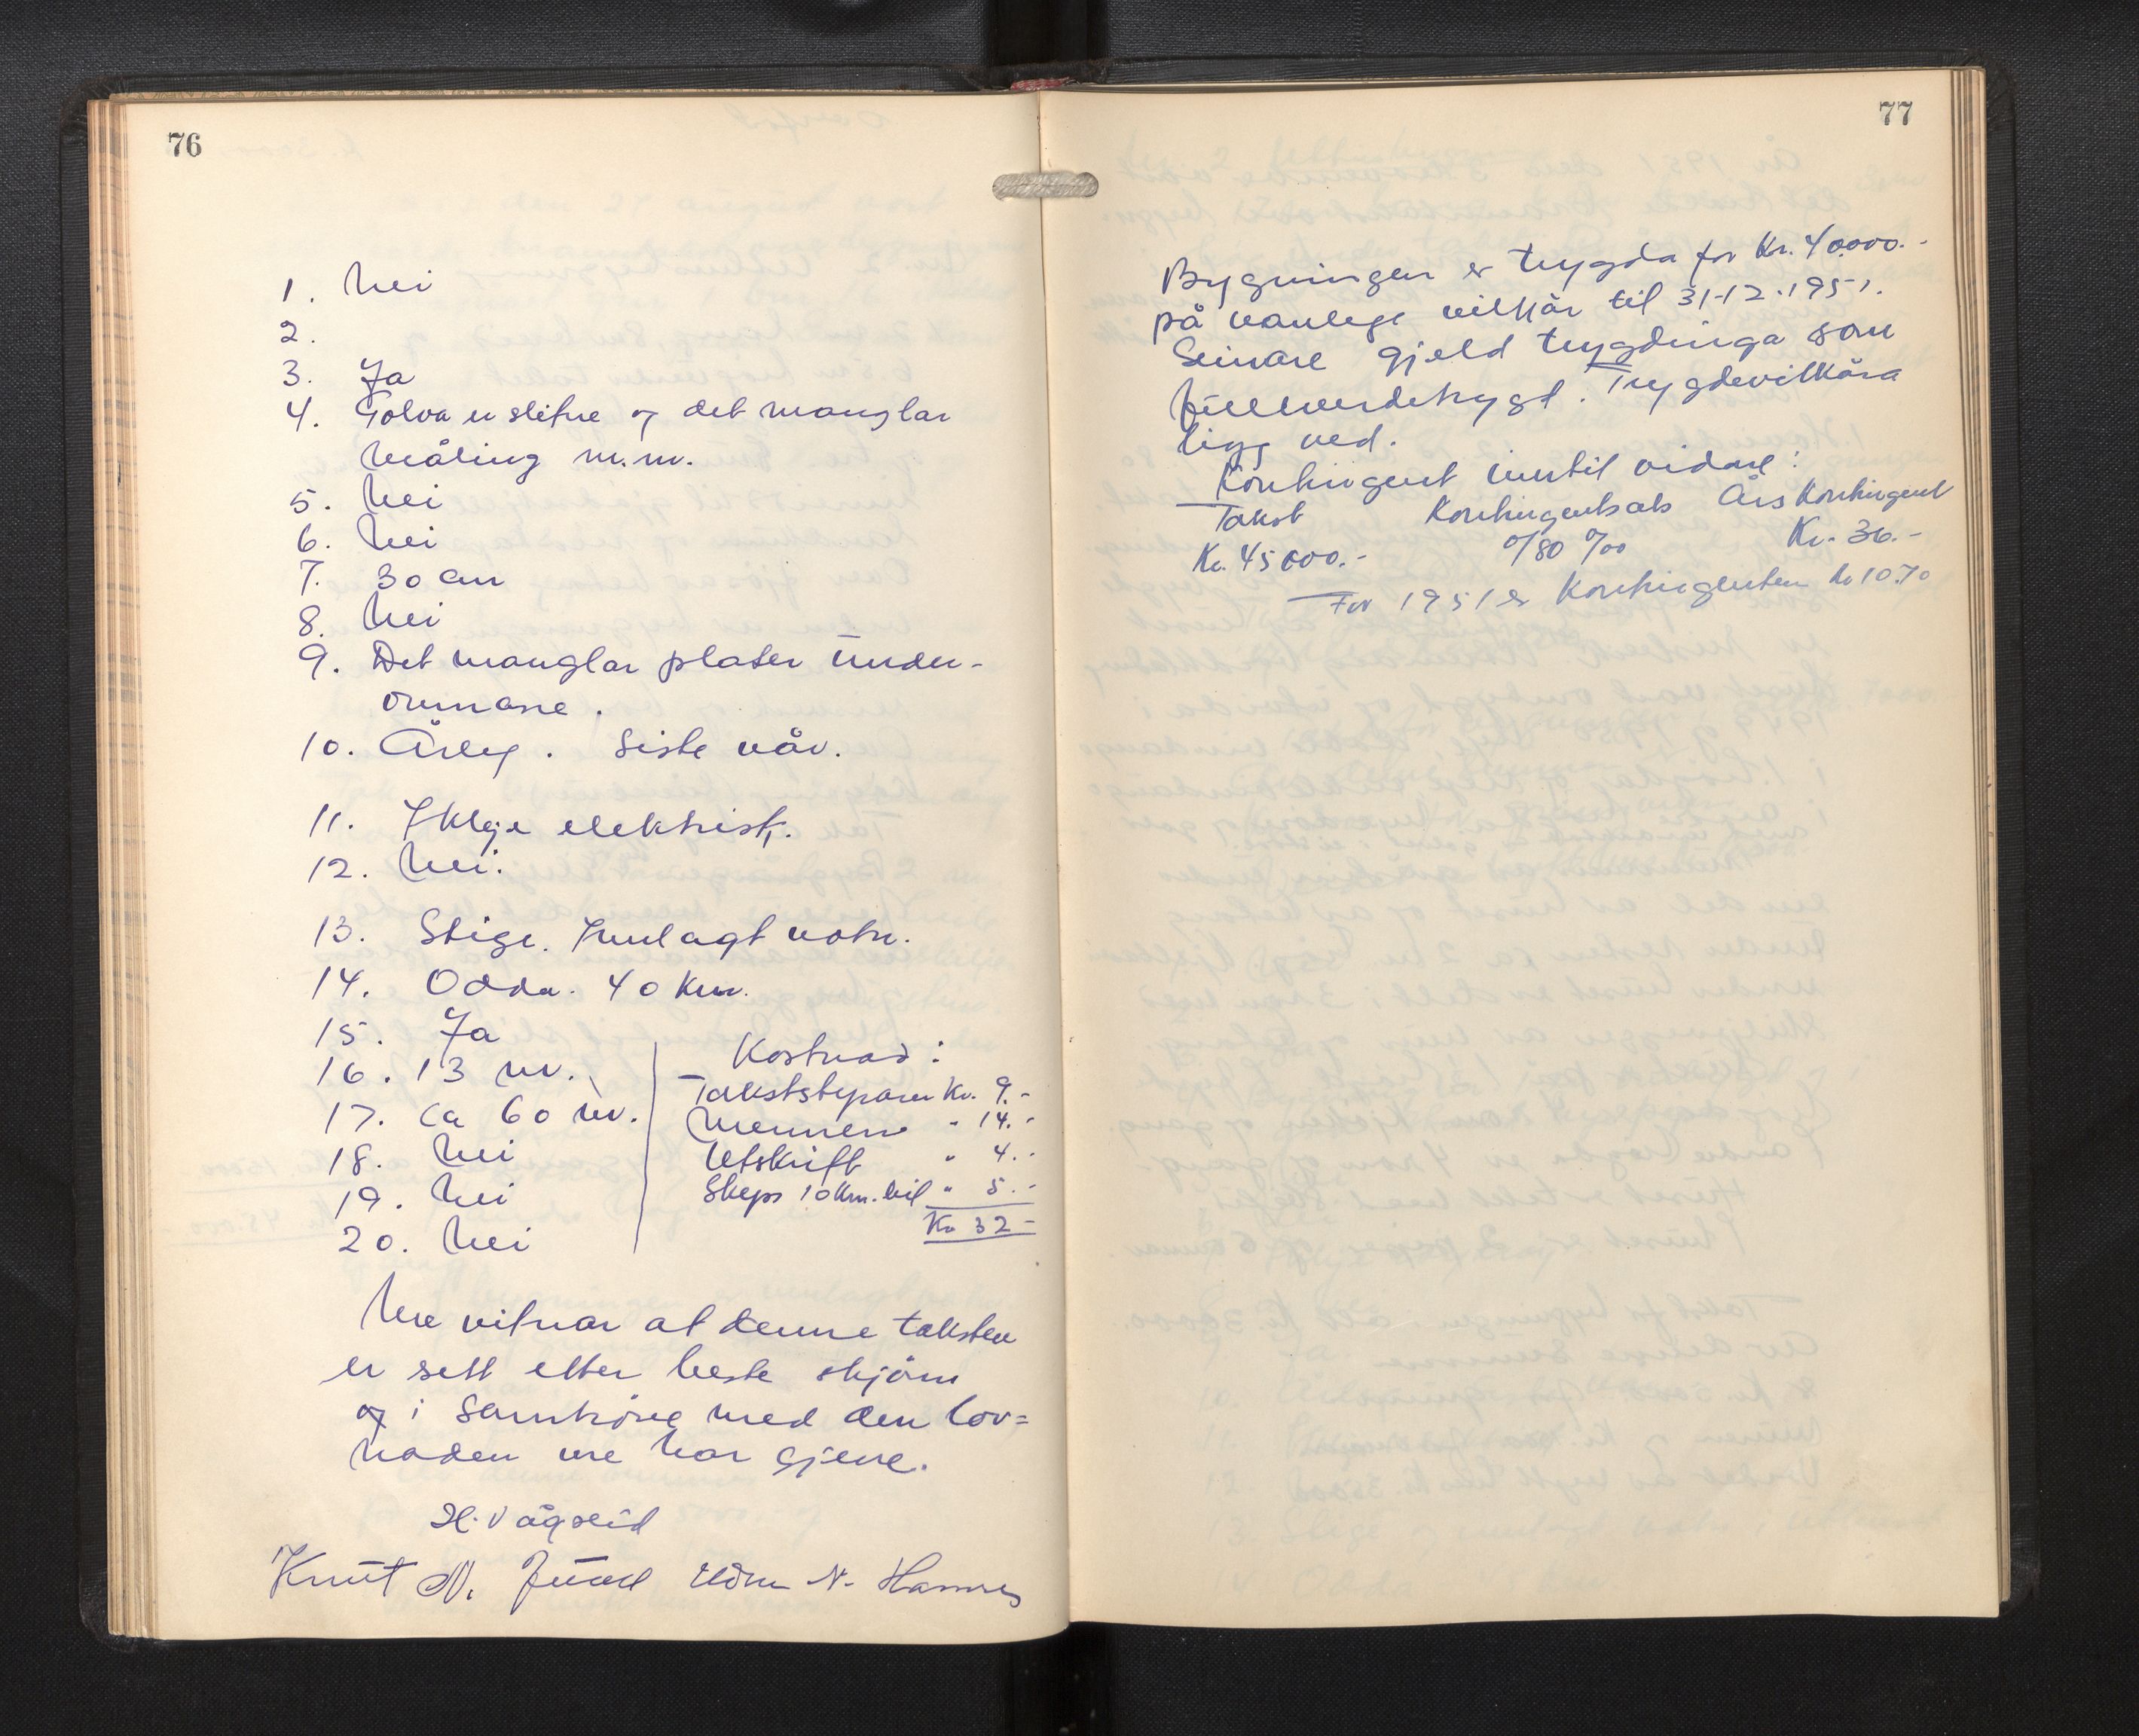 76
1. Nei
2.
3. Ja
4. Golva er slitne og det manglar
måling m.m.
5. Nei
6. Nei
7. 30 cm
8. Nei
9. Det manglar plater under-
omnane.
10. Årleg. Siste vår.
11. Ikkje elektrisk.
12. Nei.
13. Stige. Innlagt vatn.
14. Odda. 40 km.
15. Ja
16. 13 m.
17. ca 60 m.
18. Nei
19. Nei
20. Nei
Kostnad:
Takststyraren Kr. 9.-
Mennene " 14.-
Utskrift " 4.-
Skyss 10 km. bil " 5.-
Kr 32-
Me vitnar at denne taksten
er sett etter beste skjøn
og i samhøve med den lov=
naden me har gjeve.
H. Vågslid
Knut N. N. Hamres
77
Bygningen er trygda for Kr. 40000.-
på vanlege vilkår til 31-12.1951.
Seinare gjeld trygdinga som
fullverdetrygd. Trygdevilkåra
ligg ved.
Kontingent inntil vidare:
Takst Kontingentsats Årskontingent
Kr. 45000.- 0/80 ‰ Kr. 36.-
For 1951 er Kontingenten kr 10.70